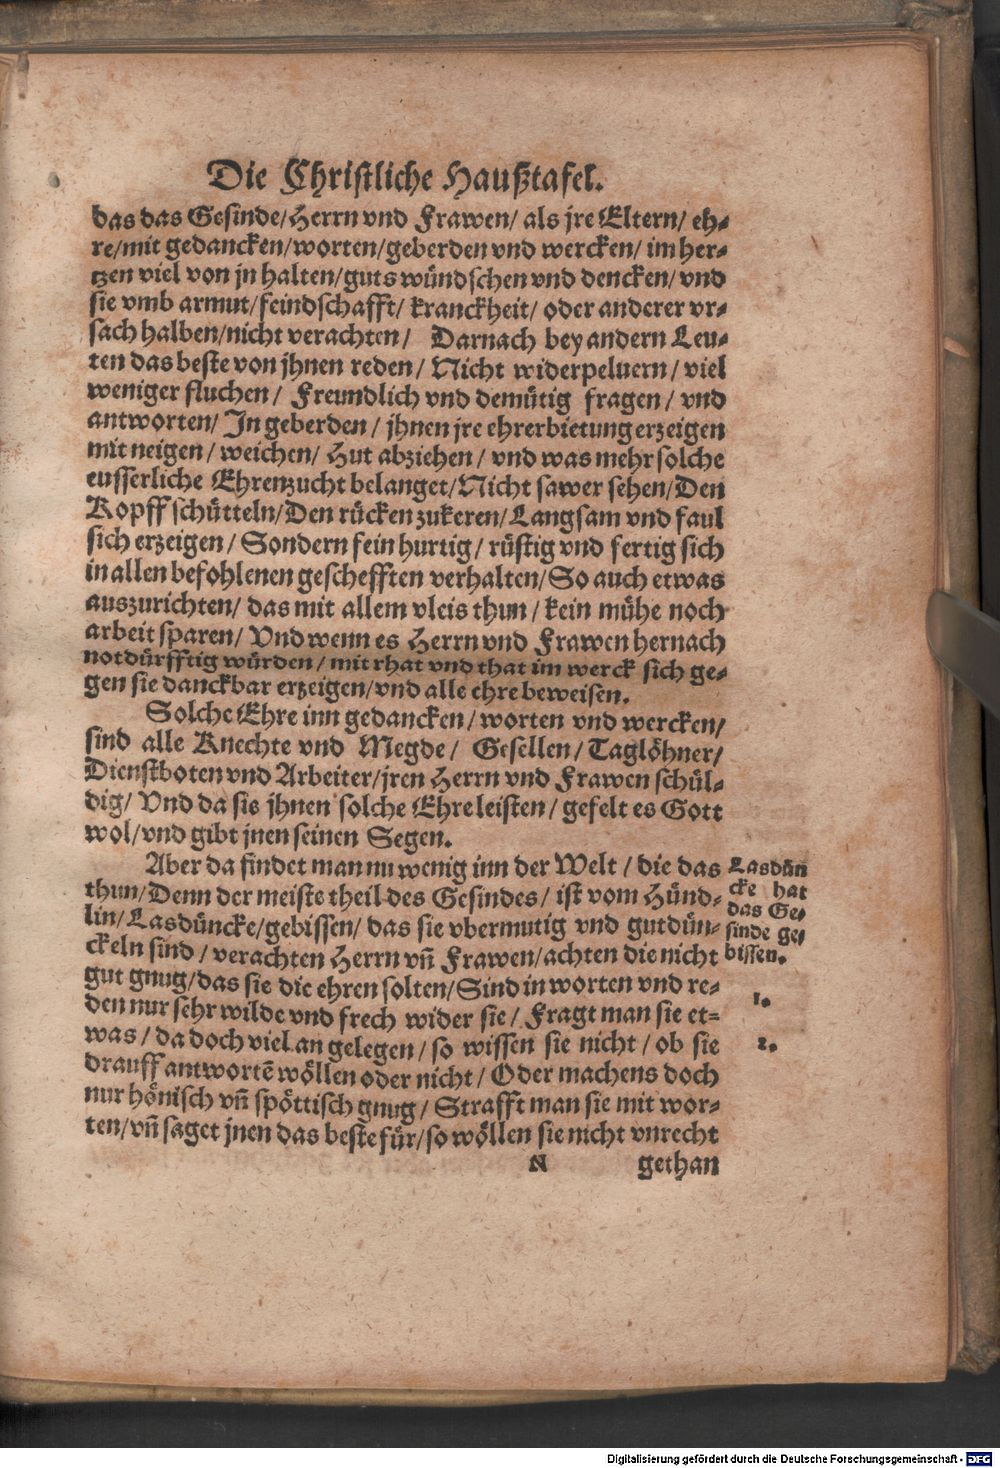 Die Christliche Haußtafel.
das das Gesinde/Herrn vnd Frawen/ als jre Eltern/ eh-
re/mit gedancken/worten/geberden vnd wercken/ im her-
tzen viel von jn halten/guts wündschen vnd dencken/ vnd
sie vmb armut/feindschafft/ kranckheit/ oder anderer vr-
sach halben/nicht verachten/ Darnach bey andern Leu-
ten das beste von jhnen reden/ Nicht widerpeluern/ viel
weniger fluchen/ Freundlich vnd demütig fragen/ vnd
antworten/ In geberden/ jhnen jre ehrerbietung erzeigen
mit neigen/ weichen/ Hut abziehen/ vnd was mehr solche
eusserliche Ehrenzucht belanget/Nicht sawer sehen/Den
Kopff schütteln/Den rücken zukeren/Langsam vnd faul
sich erzeigen/ Sondern fein hurtig/ rüstig vnd fertig sich
in allen befohlenen geschefften verhalten/So auch etwas
auszurichten/ das mit allem vleis thun/ kein mühe noch
arbeit sparen/ Vnd wenn es Herrn vnd Frawen hernach
notdürfftig würden/ mit rhat vnd that im werck sich ge-
gen sie danckbar erzeigen/vnd alle ehre beweisen.
Solche Ehre inn gedancken/ worten vnd wercken/
sind alle Knechte vnd Megde/ Gesellen/ Taglöhner/
Dienstboten vnd Arbeiter/jren Herrn vnd Frawen schül-
dig/ Vnd da sie jhnen solche Ehre leisten/ gefelt es Gott
wol/vnd gibt jnen seinen Segen.
Aber da findet man nu wenig inn der Welt/ die das
thun/Denn der meiste theil des Gesindes/ ist vom Hünd-
lin/Lasdüncke/gebissen/ das sie vbermutig vnd gutdün-
ckeln sind/ verachten Herrn vñ Frawen/achten die nicht
gut gnug/das sie die ehren solten/Sind in worten vnd re-
den nur sehr wilde vnd frech wider sie/ Fragt man sie et=
was/ da doch viel an gelegen/ so wissen sie nicht/ ob sie
drauff antwortē wöllen oder nicht/ Oder machens doch
nur hönisch vñ spöttisch gnug/ Strafft man sie mit wor-
ten/vñ saget jnen das beste für/so wöllen sie nicht vnrecht
N gethan
Lasdün
cke hat
das Ge-
sinde ge-
bissen.
1.
2.
Digitalisierung gefördert durch die Deutsche Forschungsgemeinschaft - DFG